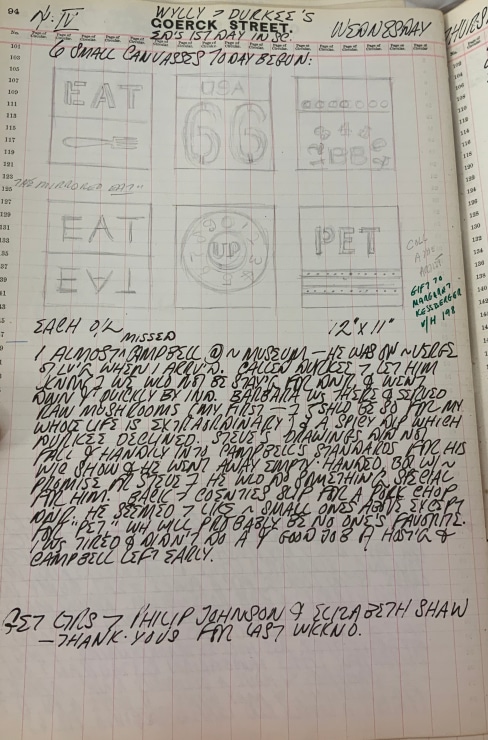 94
N. IV
WYLLY → DURKEE'S
GOERCK STREET
ED'S 1ST DAY IN SC.
WEDNESDAY
6 SMALL CANVASSES TODAY BEGUN:
EAT
USA
66
"THE MIRRORED EAT"
EAT
UP
PET
COLL
ARTIST
GIFT TO
MARGARET
EACH O/C
12" X 11"
MISSED
I ALMOST ^ CAMPBELL @ ~ MUSEUM — HE WAS ON ~ VERGE
WHEN I ARRV'D. CALLED DURKEE → LET HIM
KNOW → WE WLD NOT BE STAY'G FOR & WENT
QUICKLY BY BARBARA WS THERE & SERVED
RAW MUSHROOMS (MY FIRST — → SHLD BE SO FOR MY
WHOLE LIFE IS EXTRAORDINARY) & A SPICY DIP WHICH
DURKEE DECLINED. STEVE'S DRAWINGS DID NOT
FALL HANDILY INTO CAMPBELL'S STANDARDS FOR HIS
SHOW & HE WENT AWAY EMPTY-HANDED BUT W/ ~
PROMISE FOR STEVE → HE WLD DO SOMETHING SPECIAL
FOR HIM. BACK → COENTIES SLIP FOR A PORK CHOP
HE SEEMED → LIKE ~ SMALL ONES ABOVE EXCEPT
FOR "PET" WH. WILL PROBABLY BE NO ONE'S FAVORITE.
I WS TIRED & DIDN'T DO A GOOD JOB A HOST'G &
CAMPBELL LEFT EARLY.
GET LTRS → PHILIP JOHNSON & ELIZABETH SHAW
— THANK-YOUS FOR LAST WKEND.